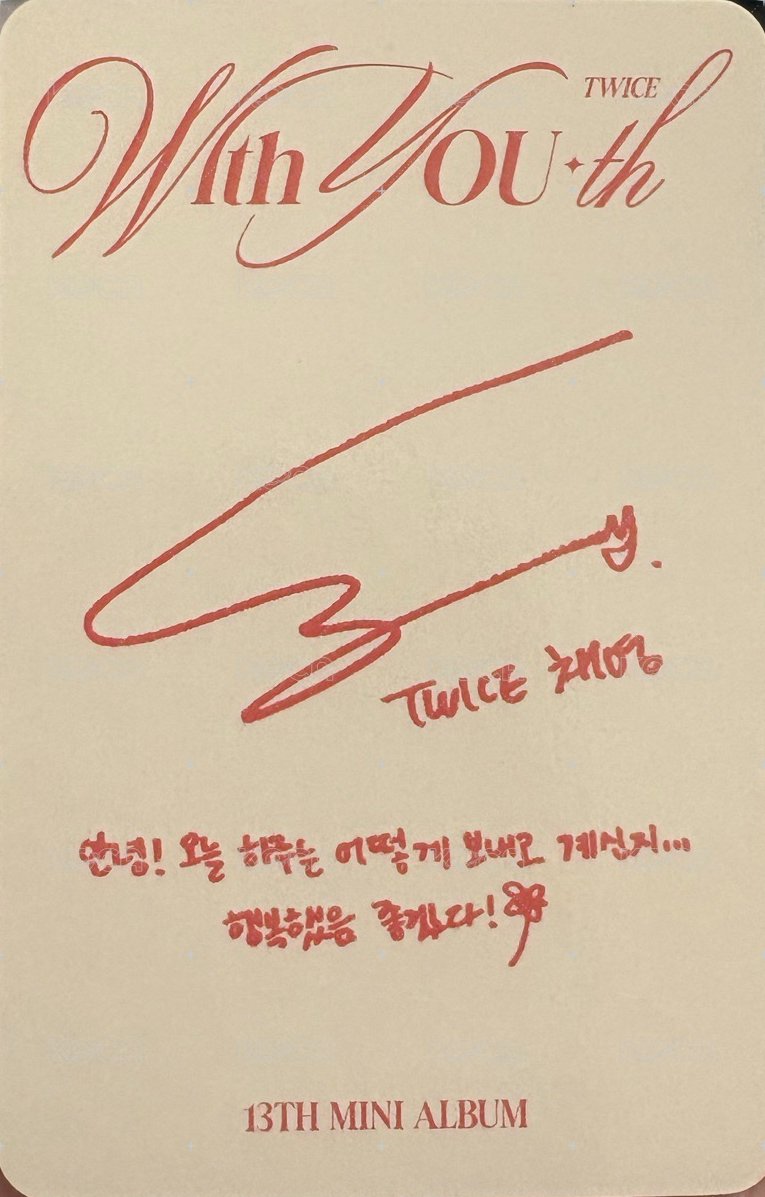 TWICE
With YOU-th
TWICE 채영
안녕! 오늘 하루는 어떻게 보내고 계신지...
행복했음 좋겠다!
13TH MINI ALBUM